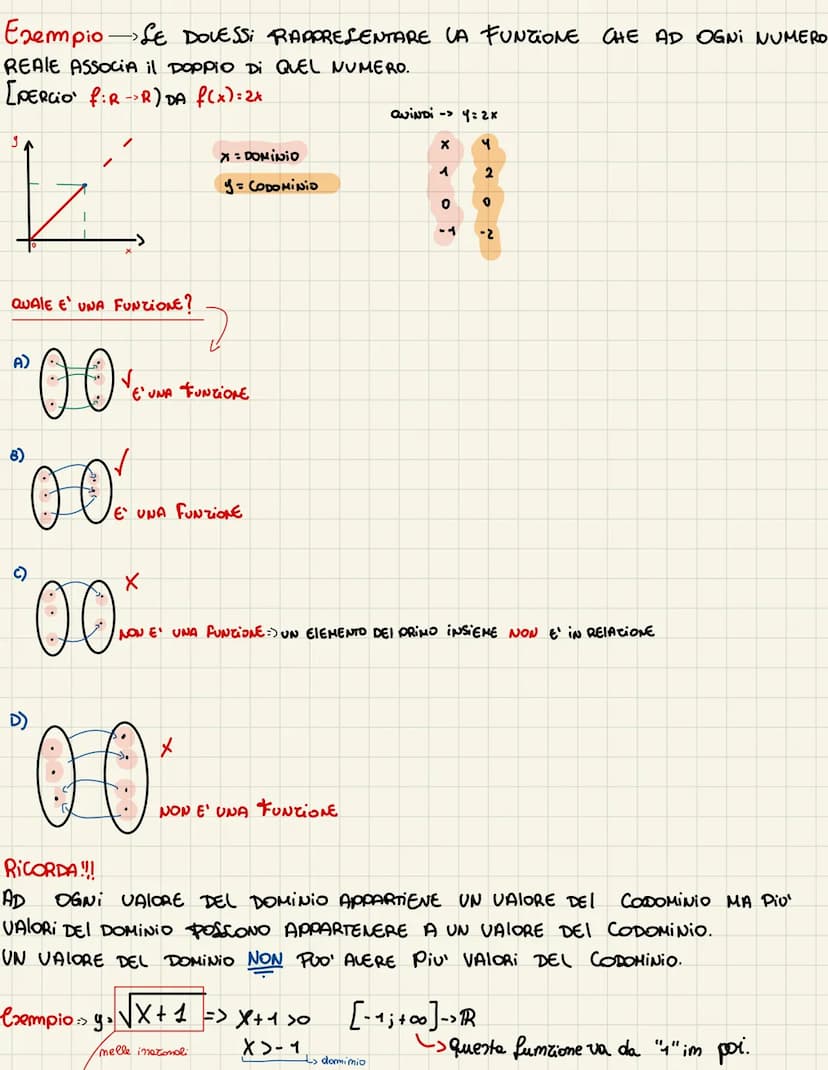 Esempio → SE DOVESSI RAPPRESENTARE LA FUNZIONE CHE AD OGNI NUMERO
REALE ASSOCIA il DOPPIO DI QUEL NUMERO.
[PERCIO' f:R→R) DA f(x)=2x
QUINDI -> y=2x
y
x = DOMINIO
y = CODOMINIO
0
x
x y
1 2
0 0
-1 -2
QUALE E' UNA FUNZIONE?
A)
√ E' UNA FUNZIONE
B)
√
E' UNA FUNZIONE
C)
X
NON E' UNA FUNZIONE => UN ELEMENTO DEL PRIMO INSIEME NON E' IN RELAZIONE
D)
X
NON E' UNA FUNZIONE
RICORDA!!!
AD OGNI VALORE DEL DOMINIO APPARTIENE UN VALORE DEL CODOMINIO MA PIU'
VALORI DEL DOMINIO POSSONO APPARTENERE A UN VALORE DEL CODOMINIO.
UN VALORE DEL DOMINIO NON PUO' AVERE PIU' VALORI DEL CODOMINIO.
Esempio => y=√x+1 => x+1>0 [-1;+∞]->R
nelle irrazionali x>-1 ↳ dominio ↳ Questa funzione va da "1" in poi.